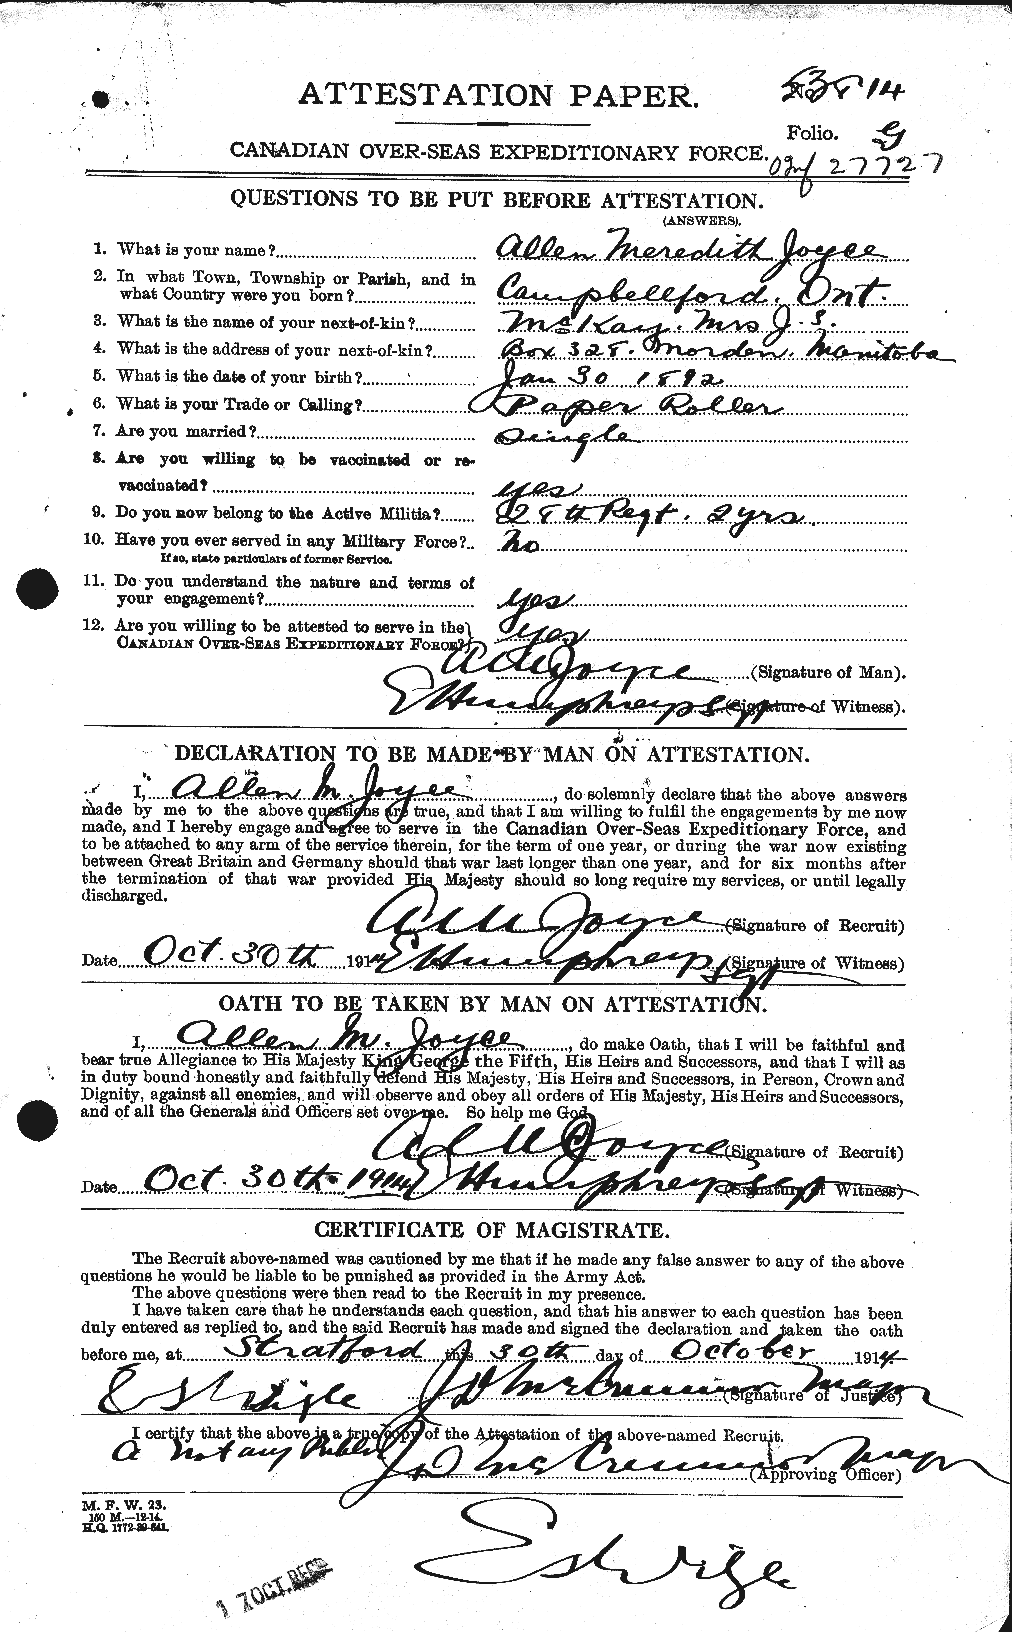 ATTESTATION PAPER.
Folio.
CANADIAN OVER-SEAS EXPEDITIONARY FORCE.
27727
QUESTIONS TO BE PUT BEFORE ATTESTATION.
(ANSWERS).
1. What is your name? Allen Meredith Joyce
2. In what Town, Township or Parish, and in
what Country were you born? Campbellford. Ont.
3. What is the name of your next-of-kin? McKay. Mrs J. S.
4. What is the address of your next-of-kin? Box 328. Morden. Manitoba
5. What is the date of your birth? Jan 30 1892
6. What is your Trade or Calling? Paper Roller
7. Are you married? Single
8. Are you willing to be vaccinated or re-
vaccinated? yes
9. Do you now belong to the Active Militia? 28th Regt. 2yrs.
10. Have you ever served in any Military Force? No
If so, state particulars of former Service.
11. Do you understand the nature and terms of
your engagement? yes
12. Are you willing to be attested to serve in the
CANADIAN OVER-SEAS EXPEDITIONARY FORCE? yes
A M Joyce (Signature of Man).
E Humphreys Sgt (Signature of Witness).
DECLARATION TO BE MADE BY MAN ON ATTESTATION.
I, Allen M. Joyce, do solemnly declare that the above answers
made by me to the above questions are true, and that I am willing to fulfil the engagements by me now
made, and I hereby engage and agree to serve in the Canadian Over-Seas Expeditionary Force, and
to be attached to any arm of the service therein, for the term of one year, or during the war now existing
between Great Britain and Germany should that war last longer than one year, and for six months after
the termination of that war provided His Majesty should so long require my services, or until legally
discharged.
A M Joyce (Signature of Recruit)
Date Oct. 30th 1914 E Humphreys Sgt (Signature of Witness)
OATH TO BE TAKEN BY MAN ON ATTESTATION.
I, Allen M. Joyce, do make Oath, that I will be faithful and
bear true Allegiance to His Majesty King George the Fifth, His Heirs and Successors, and that I will as
in duty bound honestly and faithfully defend His Majesty, His Heirs and Successors, in Person, Crown and
Dignity, against all enemies, and will observe and obey all orders of His Majesty, His Heirs and Successors,
and of all the Generals and Officers set over me. So help me God.
A M Joyce (Signature of Recruit)
Date Oct. 30th 1914 E Humphreys Sgt (Signature of Witness)
CERTIFICATE OF MAGISTRATE.
The Recruit above-named was cautioned by me that if he made any false answer to any of the above
questions he would be liable to be punished as provided in the Army Act.
The above questions were then read to the Recruit in my presence.
I have taken care that he understands each question, and that his answer to each question has been
duly entered as replied to, and the said Recruit has made and signed the declaration and taken the oath
before me, at Stratford this 30th day of October 1914
Major (Signature of Justice)
I certify that the above is a true copy of the Attestation of the above-named Recruit.
A Notary Public
Major (Approving Officer)
M. F. W. 23.
150 M.—12-14.
H.Q. 1772-39-841.
17 OCT. RECD